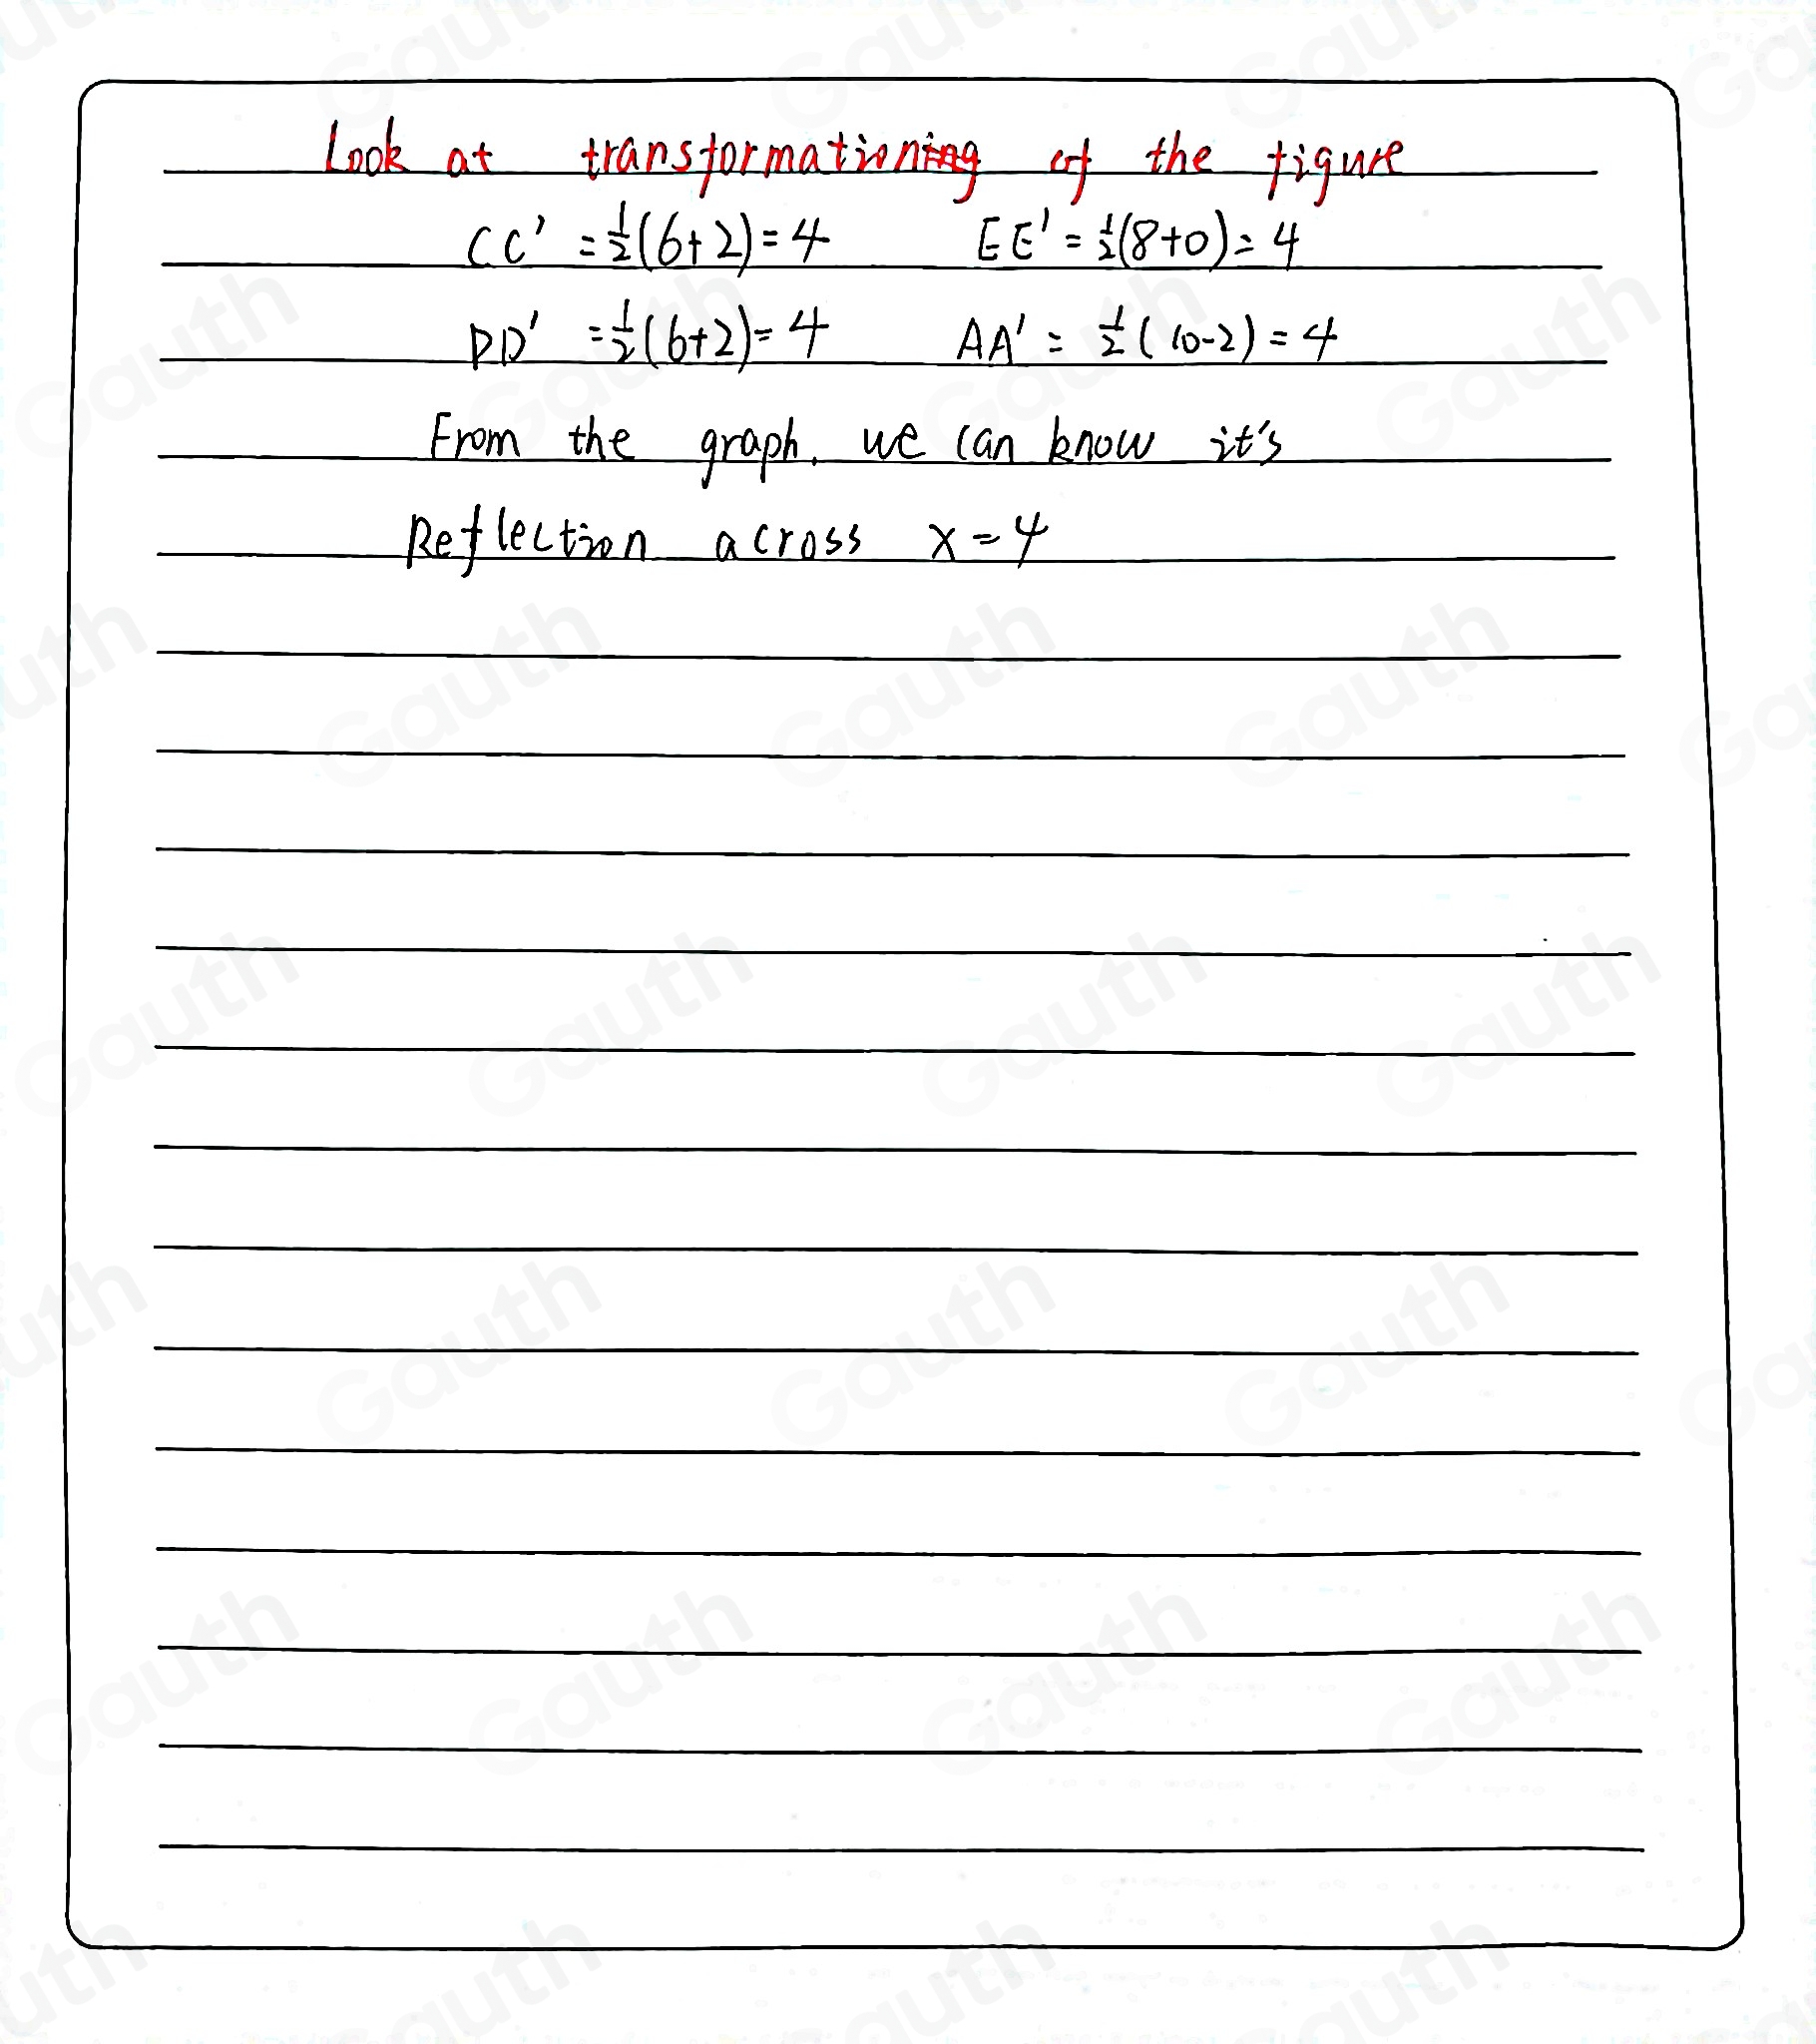 Look at transformationing of the figure
CC' = 1/2(6+2)=4 EE' = 1/2(8+0)=4
DD' = 1/2(6+2)=4 AA' = 1/2(10-2)=4
From the graph, we can know it's
Reflection across x=4